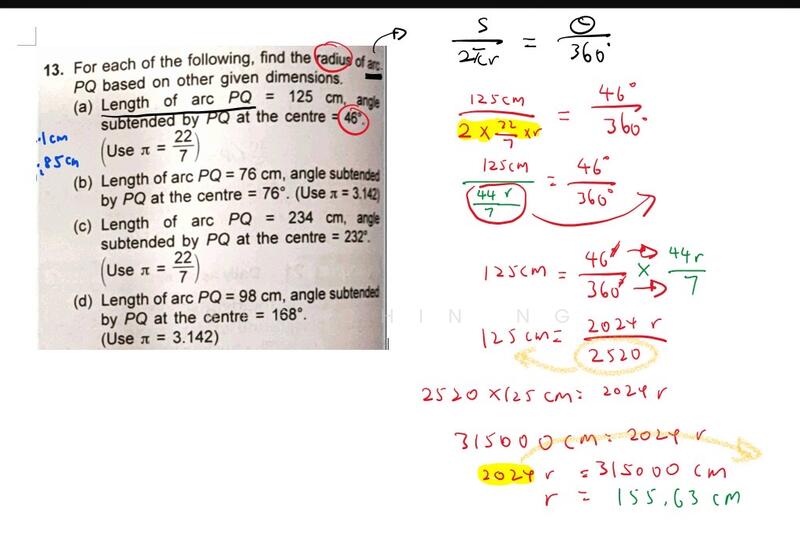 13. For each of the following, find the radius of arc
PQ based on other given dimensions.
(a) Length of arc PQ = 125 cm, angle
subtended by PQ at the centre = 46°.
(Use π = 22/7)
(b) Length of arc PQ = 76 cm, angle subtended
by PQ at the centre = 76°. (Use π = 3.142)
(c) Length of arc PQ = 234 cm, angle
subtended by PQ at the centre = 232°.
(Use π = 22/7)
(d) Length of arc PQ = 98 cm, angle subtended
by PQ at the centre = 168°.
(Use π = 3.142)
1cm
85cm
HIN NG
S/2πr = θ/360°
125cm/2 × 22/7 × r = 46°/360°
125cm/44r/7 = 46°/360°
125cm = 46°/360° × 44r/7
125cm = 2024r/2520
2520 × 125cm = 2024r
315000cm = 2024r
2024r = 315000 cm
r = 155.63 cm